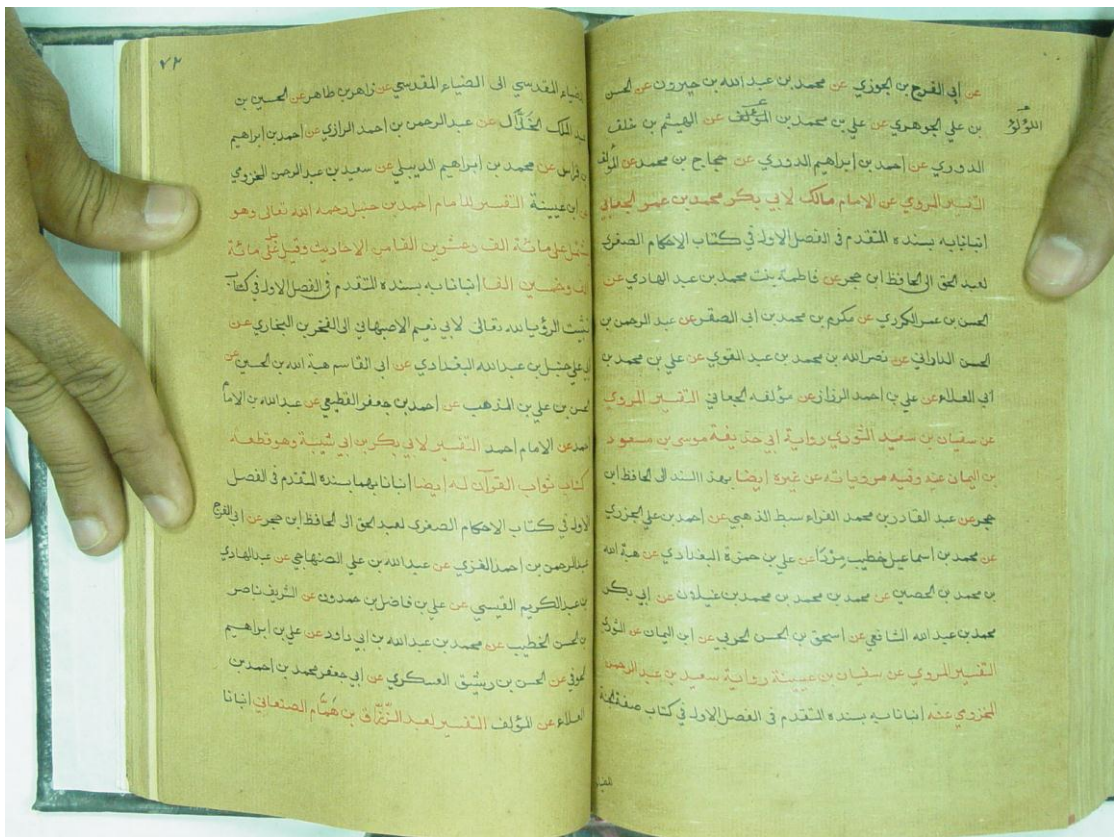 عن أبي الفرج بن الجوزي عن محمد بن عبد الله بن خيرون عن الحسن
بن علي الجوهري عن علي بن محمد بن المؤلف عن الهيثم بن خلف
اللؤلؤ
الدوري عن أحمد بن إبراهيم الدوري عن حجاج بن محمد عن المؤلف
التفسير المروي عن الامام مالك لابي بكر محمد بن عمر الجعابي
انبانا به بسنده المتقدم في الفصل الاول في كتاب الاحكام الصغرى
لعبد الحق الى الحافظ ابن حجر عن فاطمة بنت محمد بن عبد الهادي عن
الحسن بن عمر الكردي عن مكرم بن محمد بن ابي الصقر عن عبد الرحمن بن
الحسن الداراني عن نصر الله بن محمد بن عبد القوي عن علي بن محمد بن
ابي العلاء عن علي بن احمد الرزاز عن مؤلفه الجعابي التفسير المروي
عن سفيان بن سعيد الثوري رواية ابي حذيفة موسى بن مسعود
بن اليمان عنه وفيه مروياته عن غيره ايضا بهذا السند الى الحافظ ابن
حجر عن عبد القادر بن محمد الفراء سبط الذهبي عن احمد بن علي الجزري
عن محمد بن اسماعيل خطيب مردا عن علي بن حمزة البغدادي عن هبة الله
بن محمد بن الحصين عن محمد بن محمد بن محمد بن غيلان عن ابي بكر
محمد بن عبد الله الشافعي عن اسحق بن الحسن الحربي عن ابن اليمان عن الثوري
التفسير المروي عن سفيان بن عيينة رواية سعيد بن عبد الرحمن
المخزومي عنه انبانا به بسنده المتقدم في الفصل الاول في كتاب صفة الجنة
للضياء
٧٢
للضياء المقدسي الى الضياء المقدسي عن زاهر بن طاهر عن الحسين بن
عبد الملك الخلال عن عبد الرحمن بن احمد الرازي عن احمد بن إبراهيم
بن فراس عن محمد بن إبراهيم الديبلي عن سعيد بن عبد الرحمن المخزومي
عن ابن عيينة التفسير للامام احمد بن حنبل رحمه الله تعالى وهو
مشتمل على مائة الف وعشرين الفا من الاحاديث وقيل على مائة
الف وخمسين الفا انبانا به بسنده المتقدم في الفصل الاول في كتاب
تثبيت الرؤيا لله تعالى لابي نعيم الاصبهاني الى الفخر بن البخاري عن
ابي علي حنبل بن عبد الله البغدادي عن ابي القاسم هبة الله بن الحصين عن
الحسن بن علي بن المذهب عن احمد بن جعفر القطيعي عن عبد الله بن الامام
احمد عن الامام احمد التفسير لابي بكر بن ابي شيبة وهو قطعة
كتاب ثواب القرآن له ايضا انبانا بهما بسنده المتقدم في الفصل
الاول في كتاب الاحكام الصغرى لعبد الحق الى الحافظ ابن حجر عن ابي الفرج
عبد الرحمن بن احمد الغزي عن عبد الله بن علي الصنهاجي عن عبد الهادي
بن عبد الكريم القيسي عن علي بن فاضل بن حمدون عن الشريف ناصر
بن الحسن الخطيب عن محمد بن عبد الله بن ابي داود عن علي بن إبراهيم
الحوفي عن الحسن بن رشيق العسكري عن ابي جعفر محمد بن احمد بن
العلاء عن المؤلف التفسير لعبد الرزاق بن همام الصنعاني انبانا